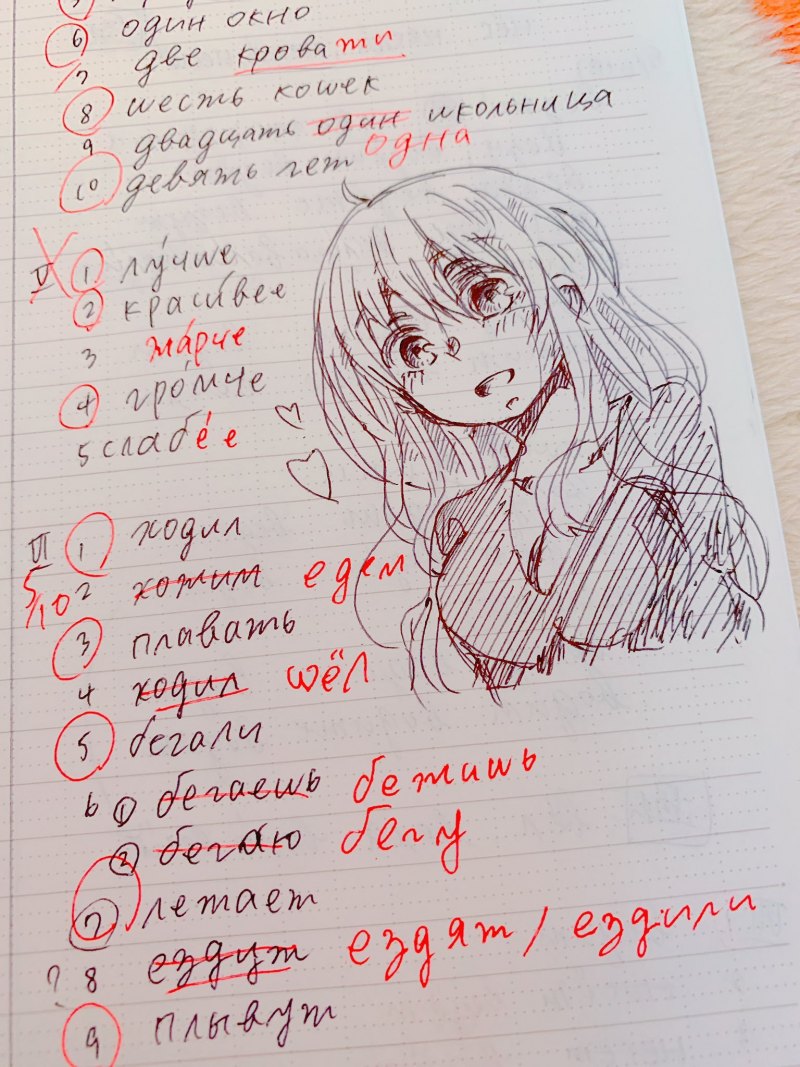 6 один окно
7 две кровати
8 шесть кошек
9 двадцать один школьница
одна
10 девять лет
V 1 лу́чше
2 краси́вее
3 жа́рче
4 гро́мче
5 слабе́е
VI 1 ходил
5/10 2 хотим едем
3 плавать
4 ходил шёл
5 бегали
6 ① бегаешь бежишь
② бегаю бегу
7 летает
? 8 ездут ездят / ездили
9 плывут